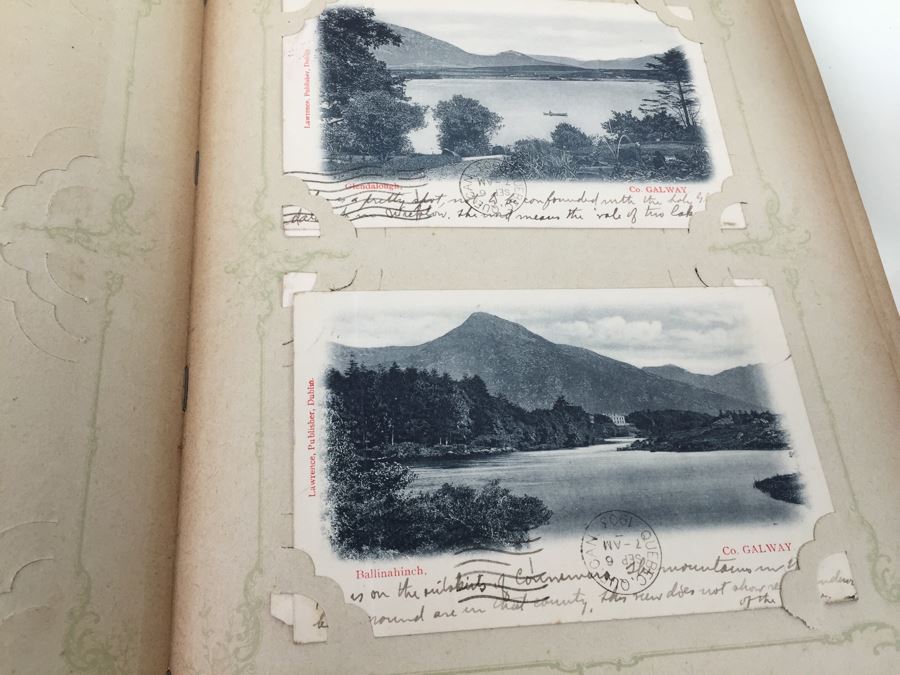 Lawrence, Publisher, Dublin
Glendalough,
Co. GALWAY
a pretty spot, not to be confounded with the holy
in Wicklow. the word means the vale of two lake
Lawrence, Publisher, Dublin.
QUEBEC QUE CAN
7-AM
SEP 6
1905
Ballinahinch,
Co. GALWAY
is on the outskirts of Connemara. The mountains in
round are in that county. this view does not show
of the